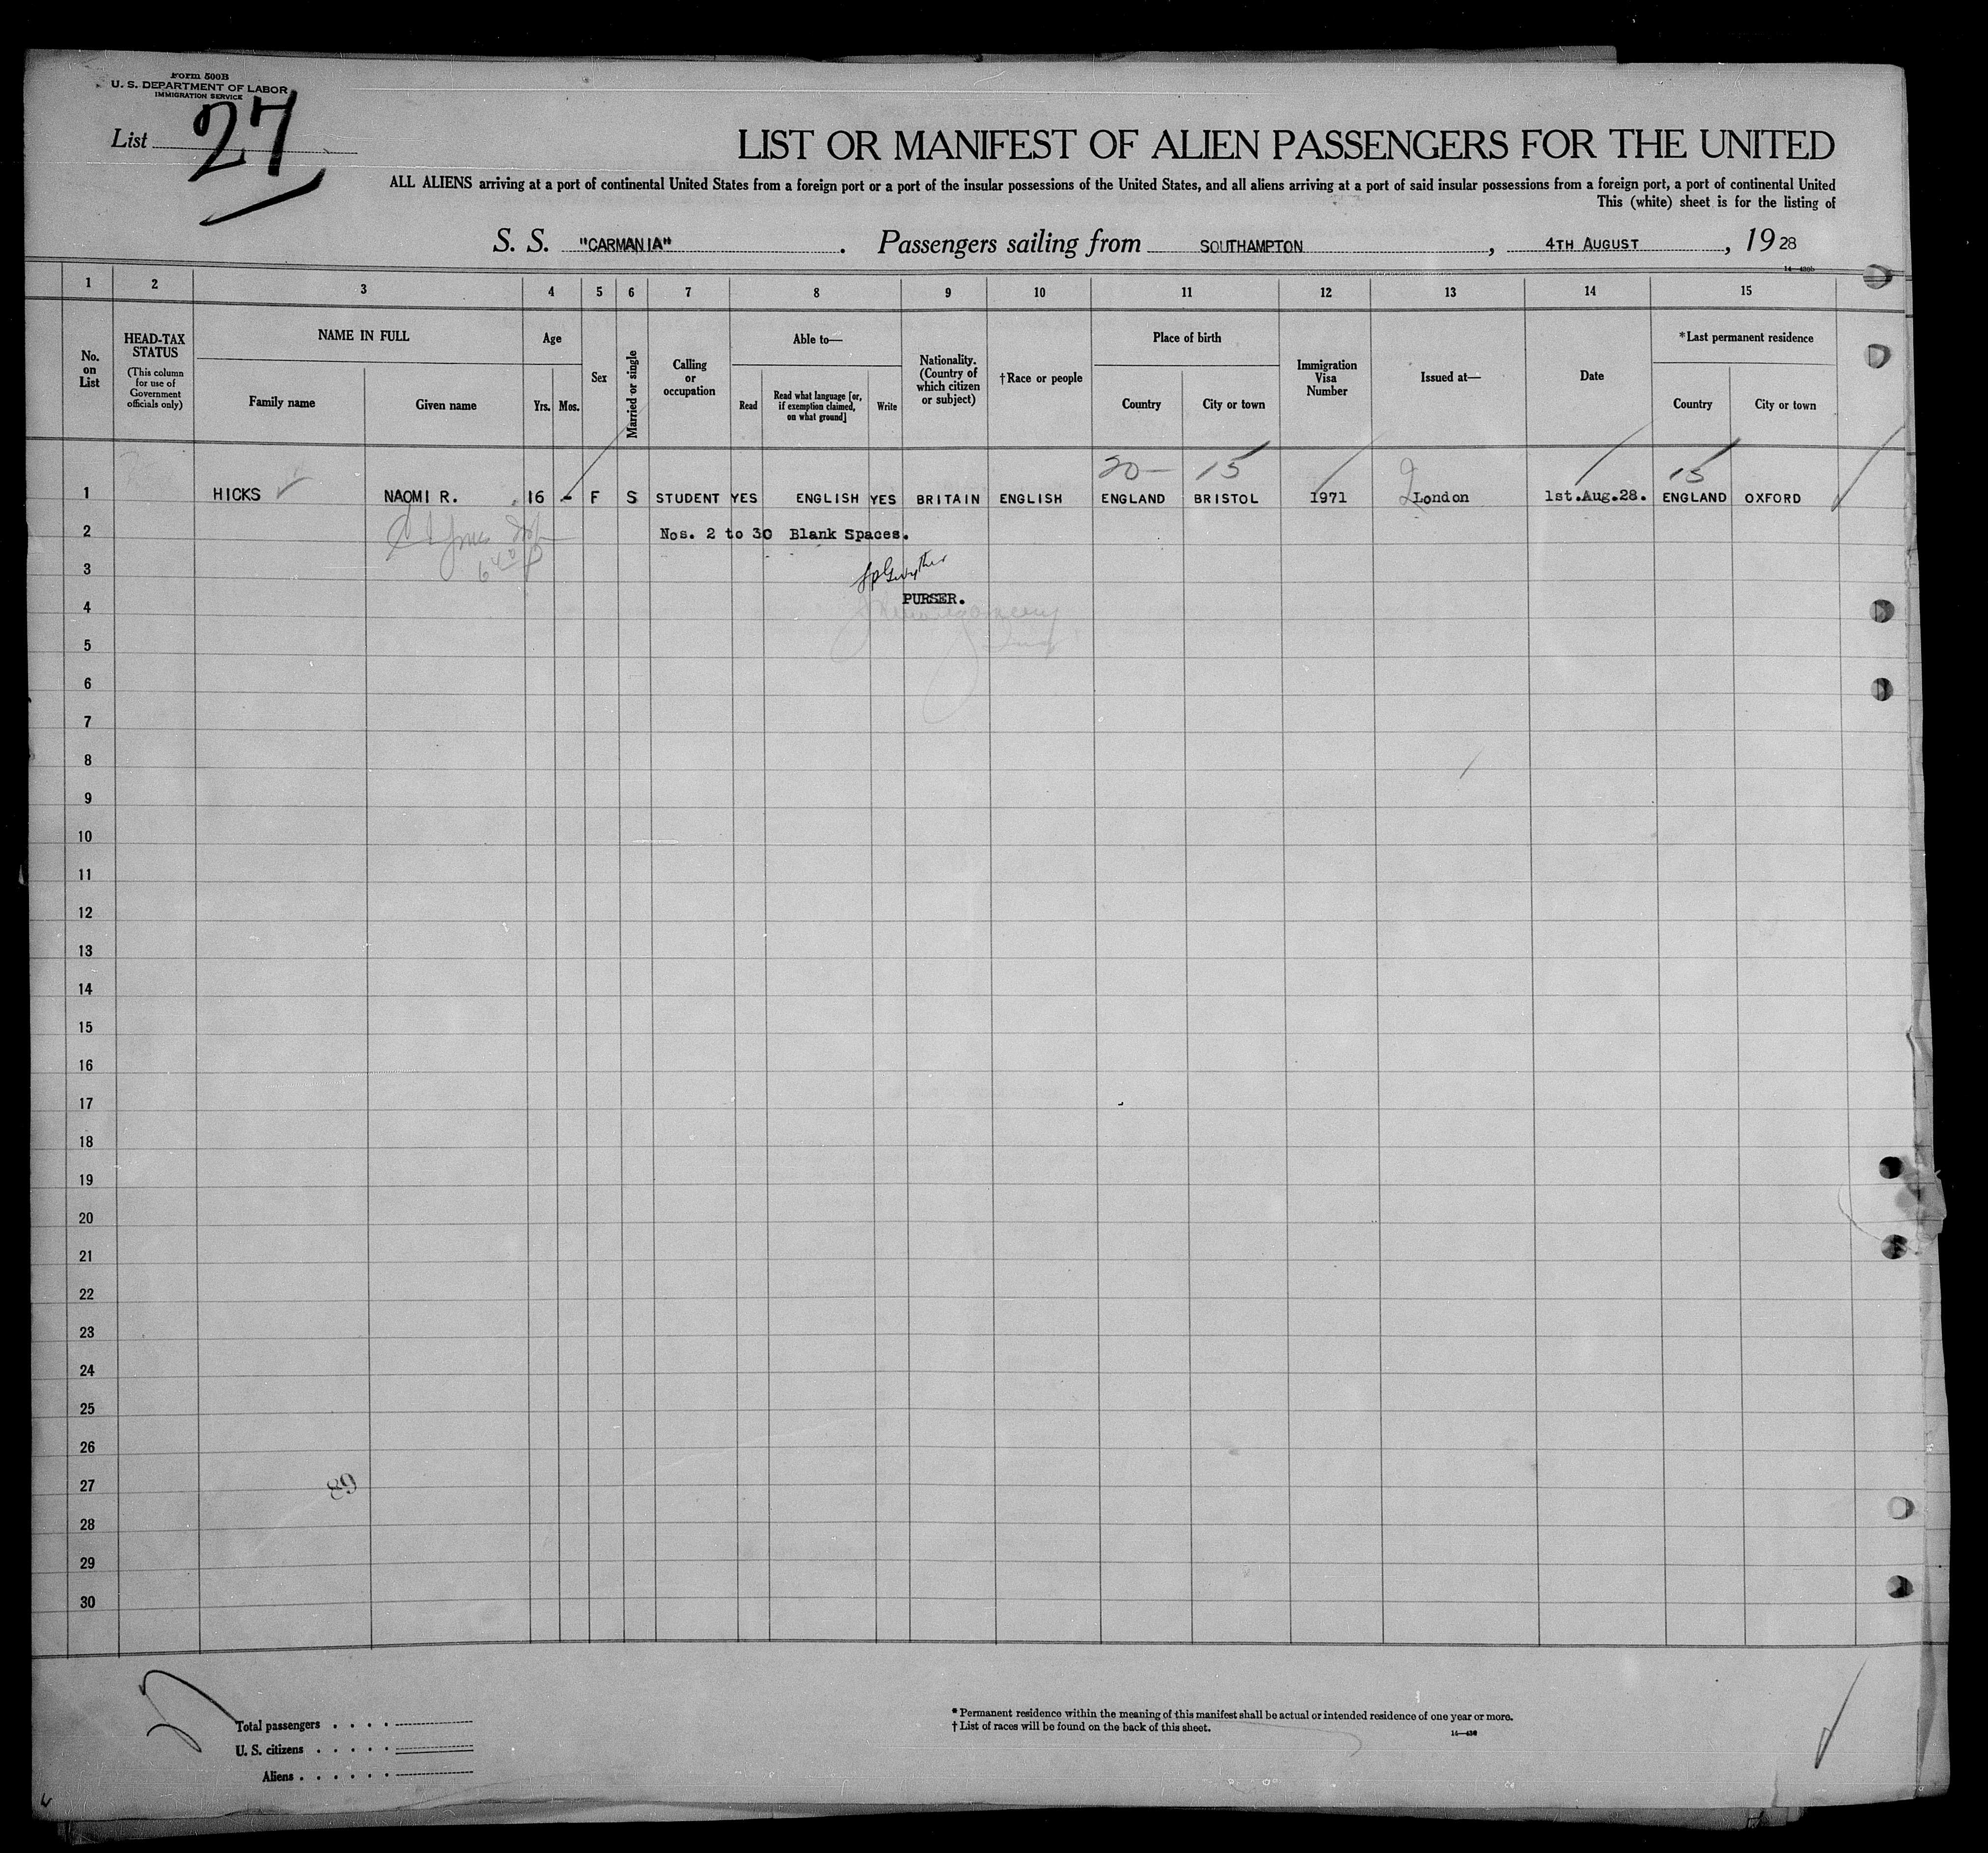 Form 500B
U. S. DEPARTMENT OF LABOR
IMMIGRATION SERVICE
List 27
LIST OR MANIFEST OF ALIEN PASSENGERS FOR THE UNITED
ALL ALIENS arriving at a port of continental United States from a foreign port or a port of the insular possessions of the United States, and all aliens arriving at a port of said insular possessions from a foreign port, a port of continental United
This (white) sheet is for the listing of
S. S. "CARMANIA" . Passengers sailing from SOUTHAMPTON , 4TH AUGUST , 1928
14—430b
1 2 3 4 5 6 7 8 9 10 11 12 13 14 15
No. on List
HEAD-TAX STATUS
(This column for use of Government officials only)
NAME IN FULL
Family name
Given name
Age
Yrs. Mos.
Sex
Married or single
Calling or occupation
Able to—
Read
Read what language [or, if exemption claimed, on what ground]
Write
Nationality. (Country of which citizen or subject)
†Race or people
Place of birth
Country
City or town
Immigration Visa Number
Issued at—
Date
*Last permanent residence
Country
City or town
20— 15 15
1 HICKS NAOMI R. 16 - F S STUDENT YES ENGLISH YES BRITAIN ENGLISH ENGLAND BRISTOL 1971 London 1st.Aug.28. ENGLAND OXFORD
2 Nos. 2 to 30 Blank Spaces.
3
PURSER.
4
5
6
7
8
9
10
11
12
13
14
15
16
17
18
19
20
21
22
23
24
25
26
27
89
28
29
30
Total passengers . . . .
U. S. citizens . . . . .
Aliens . . . . . .
* Permanent residence within the meaning of this manifest shall be actual or intended residence of one year or more.
† List of races will be found on the back of this sheet.
14—430